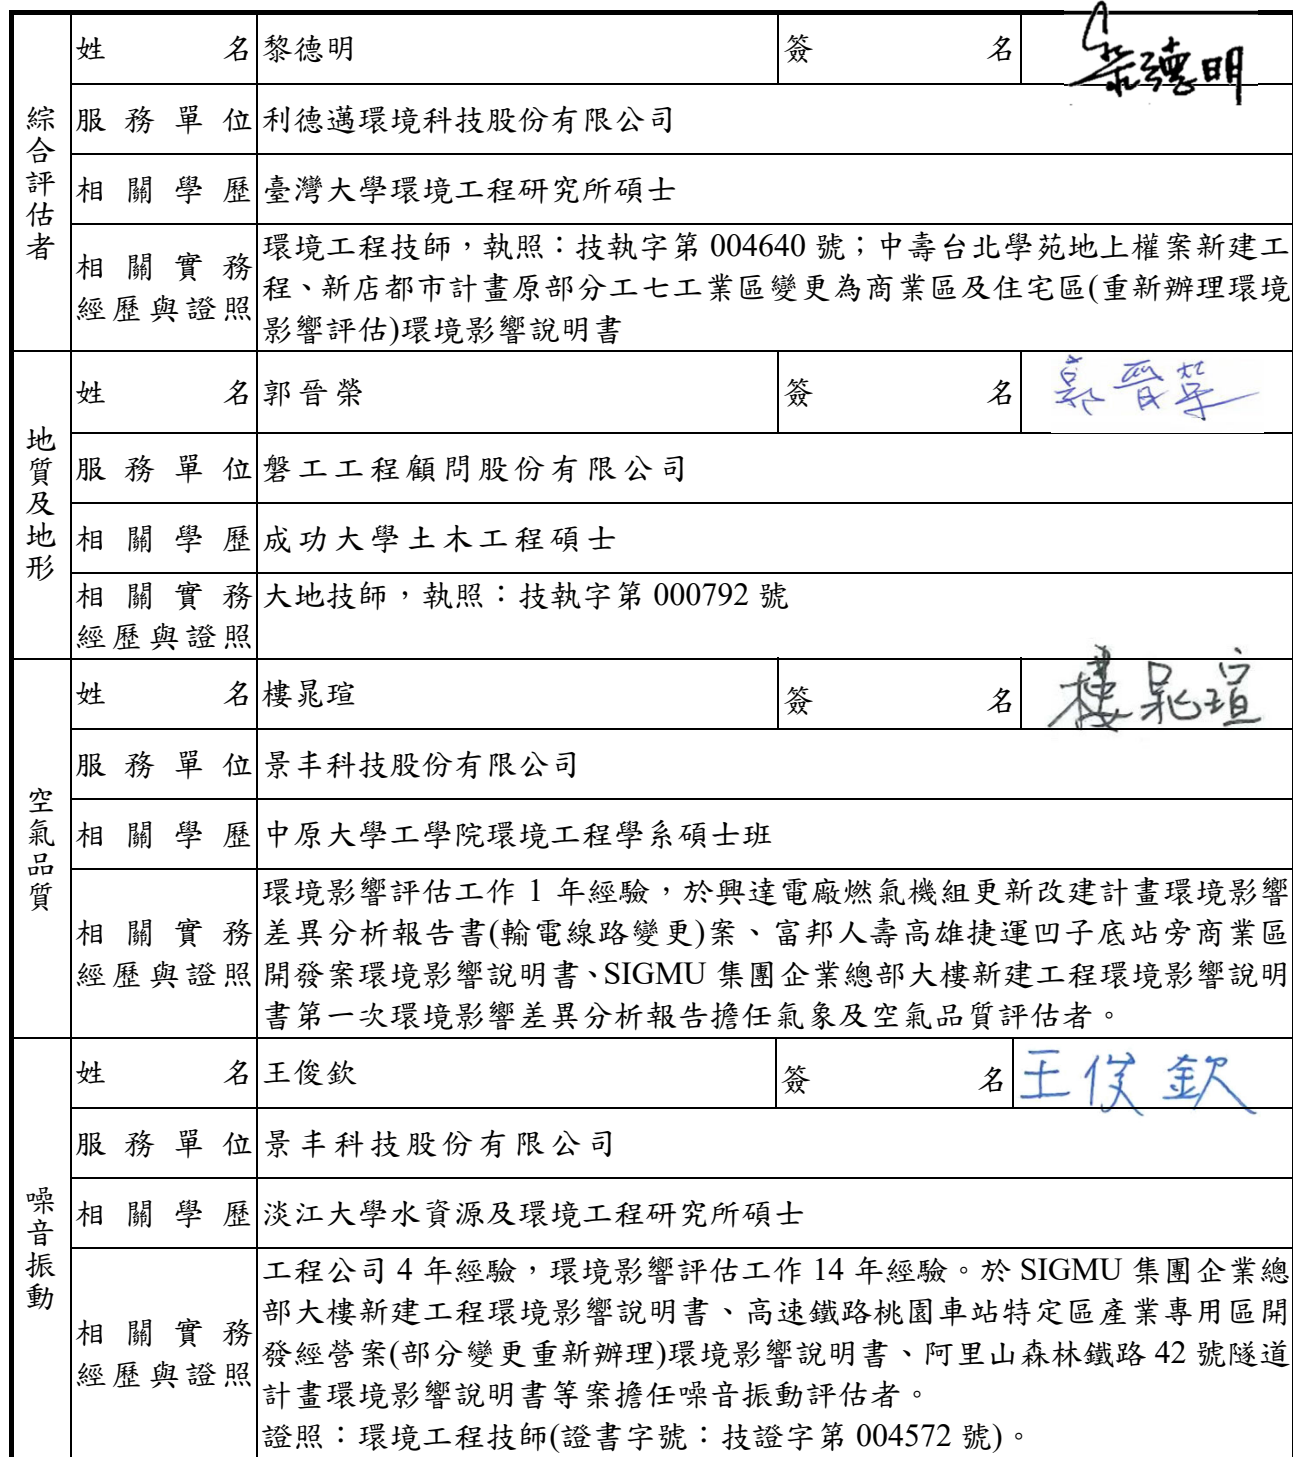 綜合評估者
姓名 黎德明 簽名 黎德明
服務單位 利德邁環境科技股份有限公司
相關學歷 臺灣大學環境工程研究所碩士
相關實務經歷與證照
環境工程技師，執照：技執字第 004640 號；中壽台北學苑地上權案新建工
程、新店都市計畫原部分工七工業區變更為商業區及住宅區(重新辦理環境
影響評估)環境影響說明書
地質及地形
姓名 郭晉榮 簽名 郭晉榮
服務單位 磐工工程顧問股份有限公司
相關學歷 成功大學土木工程碩士
相關實務經歷與證照
大地技師，執照：技執字第 000792 號
空氣品質
姓名 樓晁瑄 簽名 樓晁瑄
服務單位 景丰科技股份有限公司
相關學歷 中原大學工學院環境工程學系碩士班
相關實務經歷與證照
環境影響評估工作 1 年經驗，於興達電廠燃氣機組更新改建計畫環境影響
差異分析報告書(輸電線路變更)案、富邦人壽高雄捷運凹子底站旁商業區
開發案環境影響說明書、SIGMU 集團企業總部大樓新建工程環境影響說明
書第一次環境影響差異分析報告擔任氣象及空氣品質評估者。
噪音振動
姓名 王俊欽 簽名 王俊欽
服務單位 景丰科技股份有限公司
相關學歷 淡江大學水資源及環境工程研究所碩士
相關實務經歷與證照
工程公司 4 年經驗，環境影響評估工作 14 年經驗。於 SIGMU 集團企業總
部大樓新建工程環境影響說明書、高速鐵路桃園車站特定區產業專用區開
發經營案(部分變更重新辦理)環境影響說明書、阿里山森林鐵路 42 號隧道
計畫環境影響說明書等案擔任噪音振動評估者。
證照：環境工程技師(證書字號：技證字第 004572 號)。